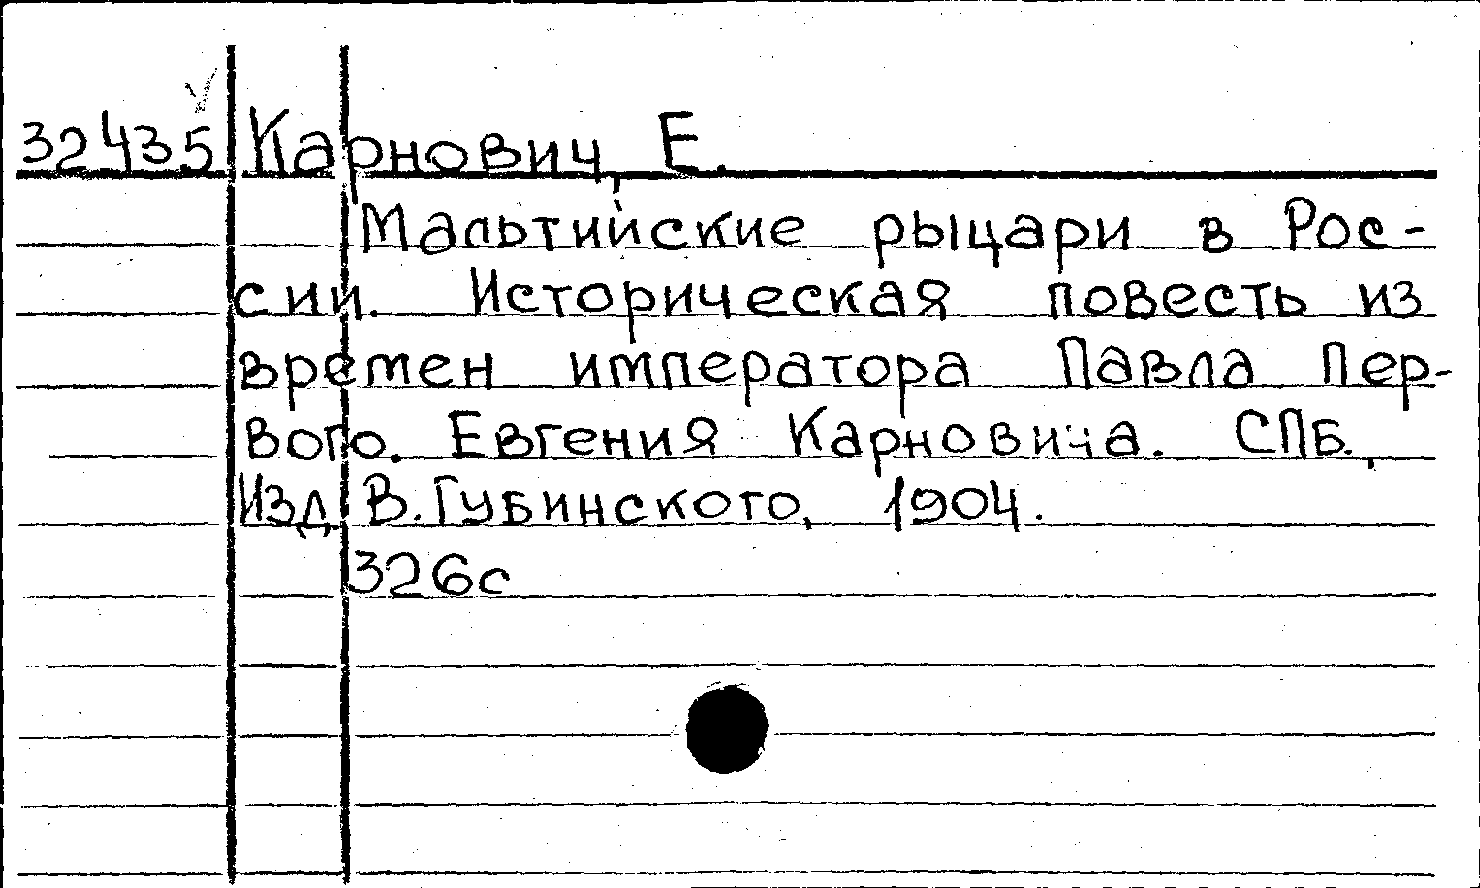 32435 Карнович, Е.
Мальтийские рыцари в Рос-
сии. Историческая повесть из
времен императора Павла Пер-
вого. Евгения Карновича. СПБ.,
Изд. В.Губинского, 1904.
326с